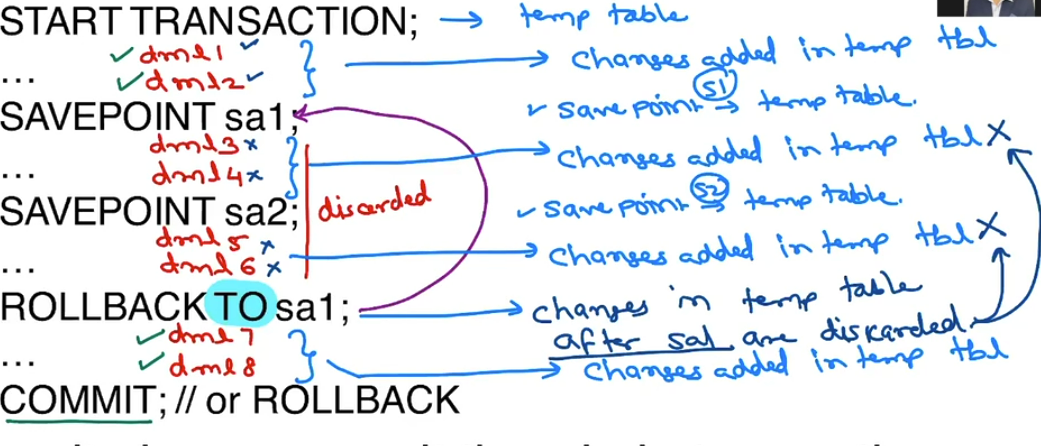 START TRANSACTION; → temp table
✓ dml1 ✓ } → changes added in temp tbl
... ✓ dml2 ✓
SAVEPOINT sa1; ✓ save point (S1) → temp table.
dml3 x } → changes added in temp tbl X
... dml4 x
SAVEPOINT sa2; discarded ✓ save point (S2) → temp table.
dml5 x → changes added in temp tbl X
... dml6 x
ROLLBACK TO sa1; → changes in temp table
after sa1 are discarded.
✓ dml7 } → changes added in temp tbl
... ✓ dml8
COMMIT; // or ROLLBACK